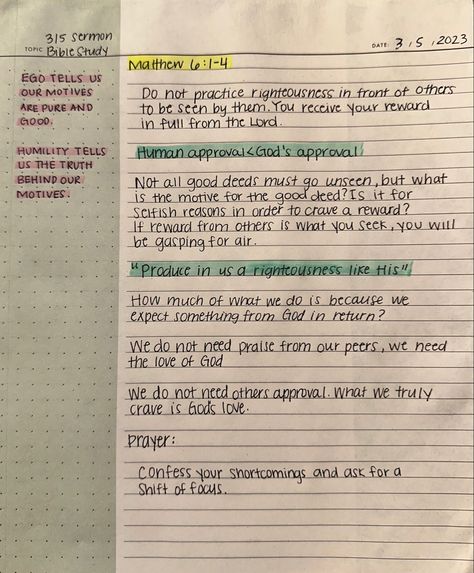 315 Sermon
TOPIC Bible Study
DATE: 3 / 5 / 2023
EGO TELLS US
OUR MOTIVES
ARE PURE AND
GOOD.
HUMILITY TELLS
US THE TRUTH
BEHIND OUR
MOTIVES.
Matthew 6:1-4
Do not practice righteousness in front of others
to be seen by them. You receive your reward
in full from the Lord.
Human approval<God's approval
Not all good deeds must go unseen, but what
is the motive for the good deed? Is it for
selfish reasons in order to crave a reward?
If reward from others is what you seek, you will
be gasping for air.
"Produce in us a righteousness like His"
How much of what we do is because we
expect something from God in return?
We do not need praise from our peers, we need
the love of God
We do not need others approval. What we truly
crave is God's love.
Prayer:
Confess your shortcomings and ask for a
shift of focus.